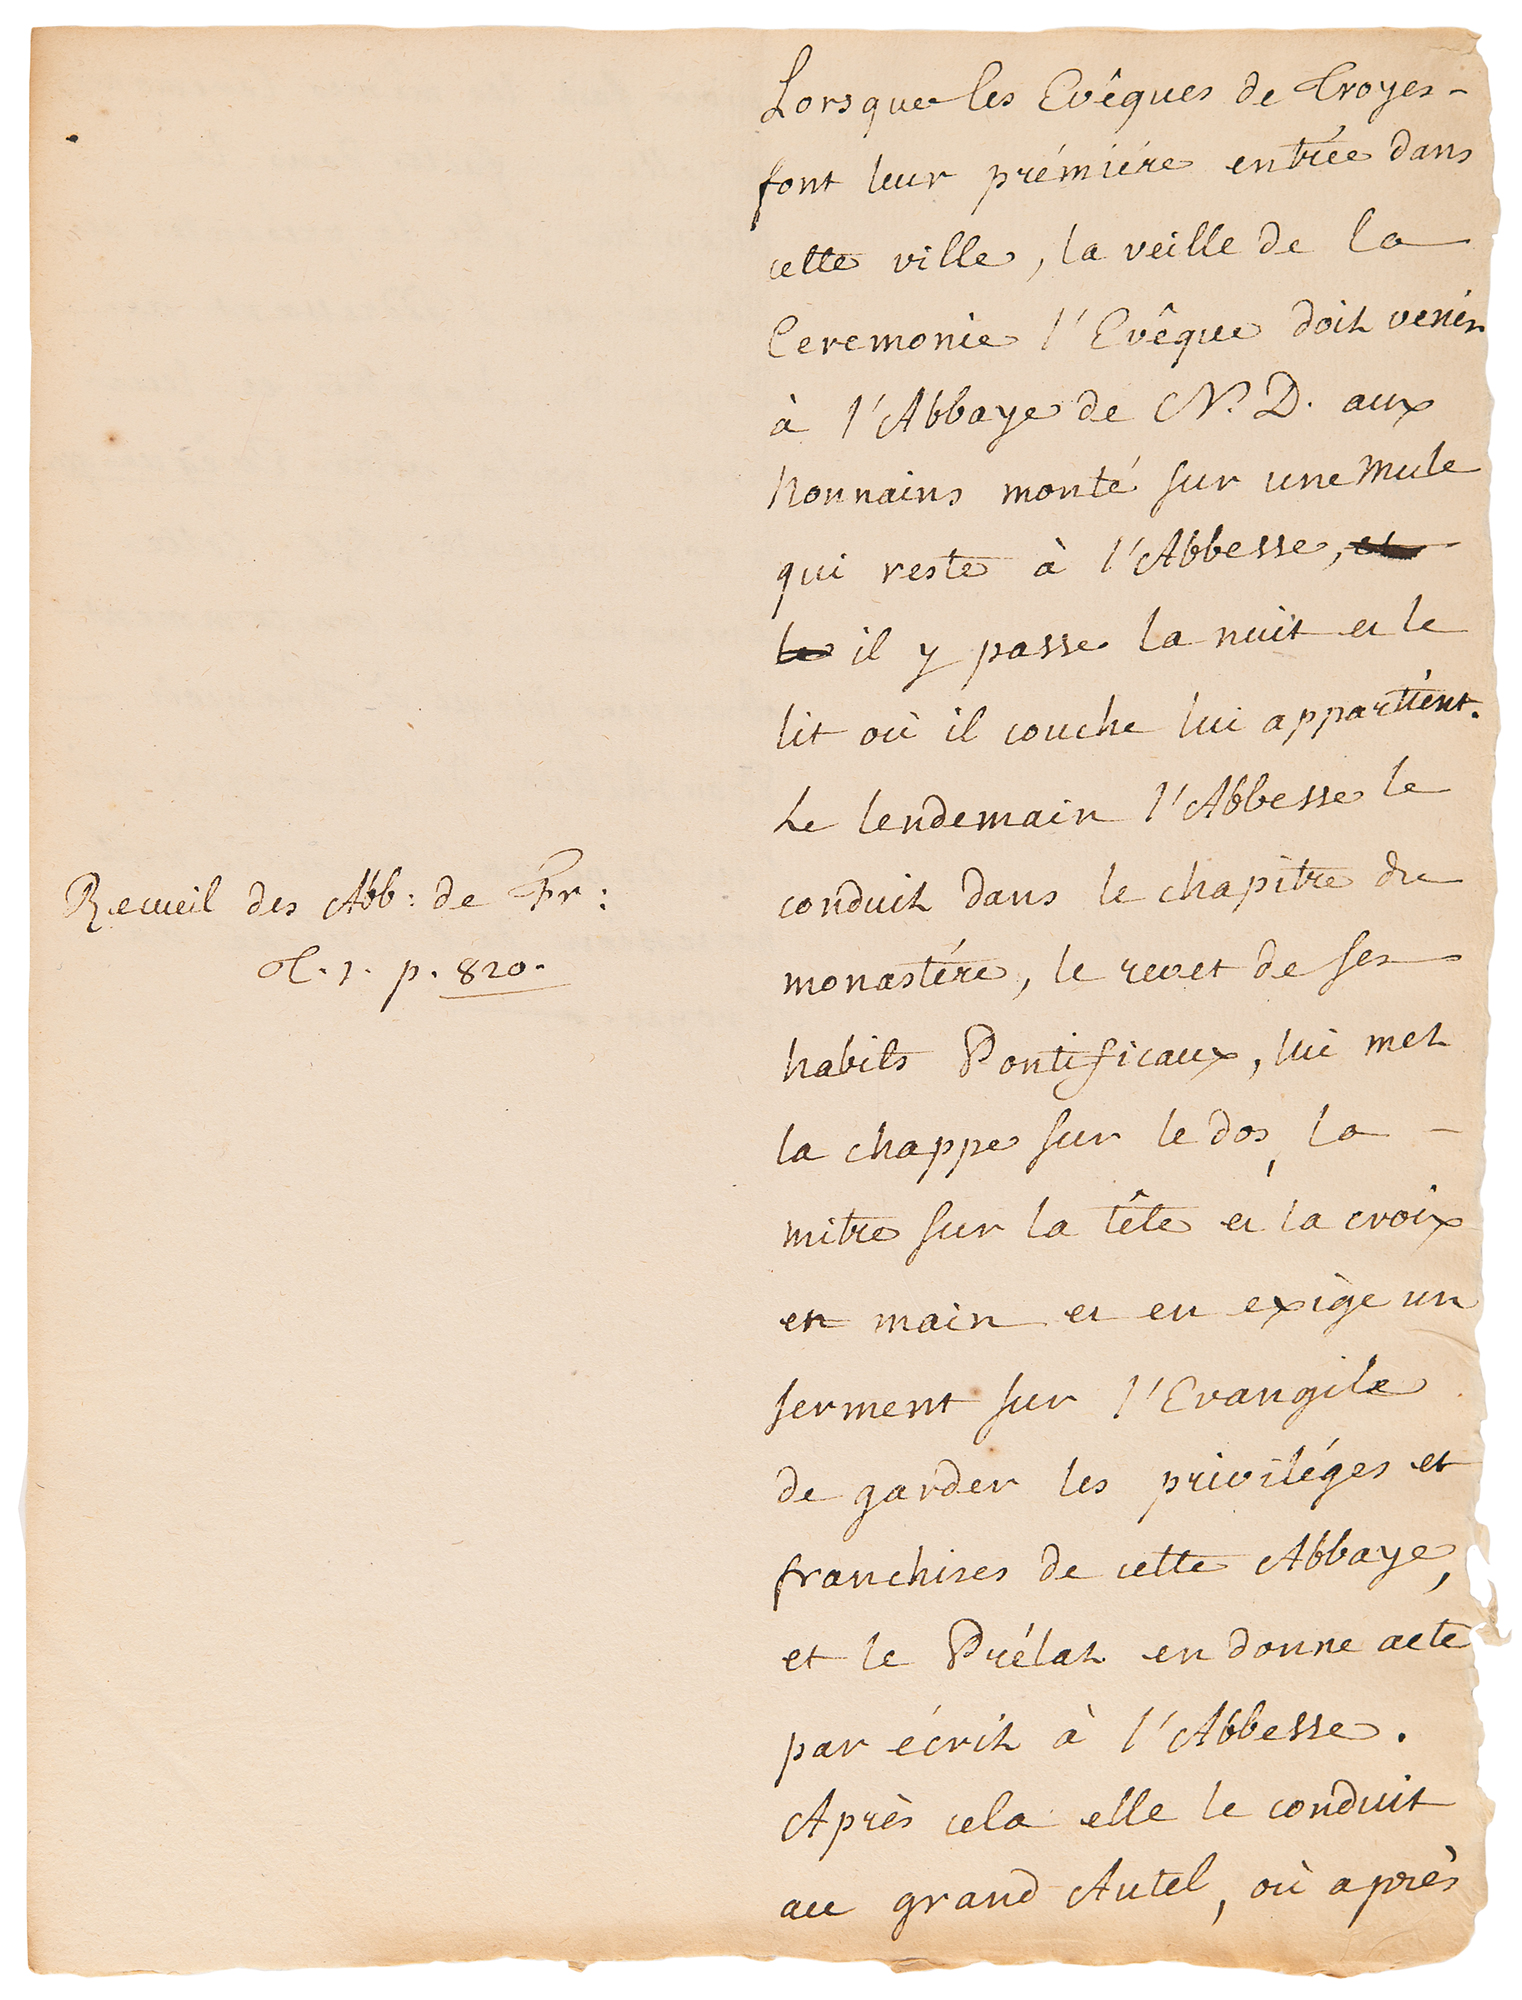 Lorsque les Evêques de Troyes -
font leur prémiére entrée dans
cette ville, la veille de la
Ceremonie l'Evêque doit venir
à l'Abbaye de N. D. aux
Nonnains monté sur une Mule
qui reste à l'Abbesse, et
le il y passe la nuit et le
lit où il couche lui appartient.
Le lendemain l'Abbesse le
conduit dans le chapitre du
monastére, le revet de ses
habits Pontificaux, lui met
la chappe sur le dos, la -
mitre sur la tête et la croix
en main et en exige un
serment sur l'Evangile
de garder les priviléges et
franchises de cette Abbaye,
et le Prélat en donne acte
par écrit à l'Abbesse.
Après cela elle le conduit
au grand Autel, où après
Recueil des Abb: de Fr:
T. 1. p. 820.